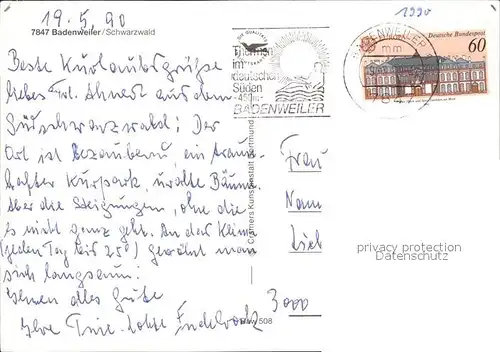 19.5.90
7847 Badenweiler/Schwarzwald
1990
Beste Kurlaubsgrüße
liebes Frl. Ahnert aus dem
Südschwarzwald! Der
Ort ist bezaubernd, ein traum-
hafter Kurpark, uralte Bäume.
Aber die Steigungen, ohne die
es nicht ganz geht. An das Klima
(jeden Tag bis 25°) gewöhnt man
sich langsam!
Ihnen alles Gute
Ihre
Thermen
im
deutschen
Süden
-450m-
BADENWEILER
BADENWEILER
mm
Deutsche Bundespost
60
Cramers Kunstanstalt Dortmund
Bwv 508
Frau
3000
privacy protection
Datenschutz